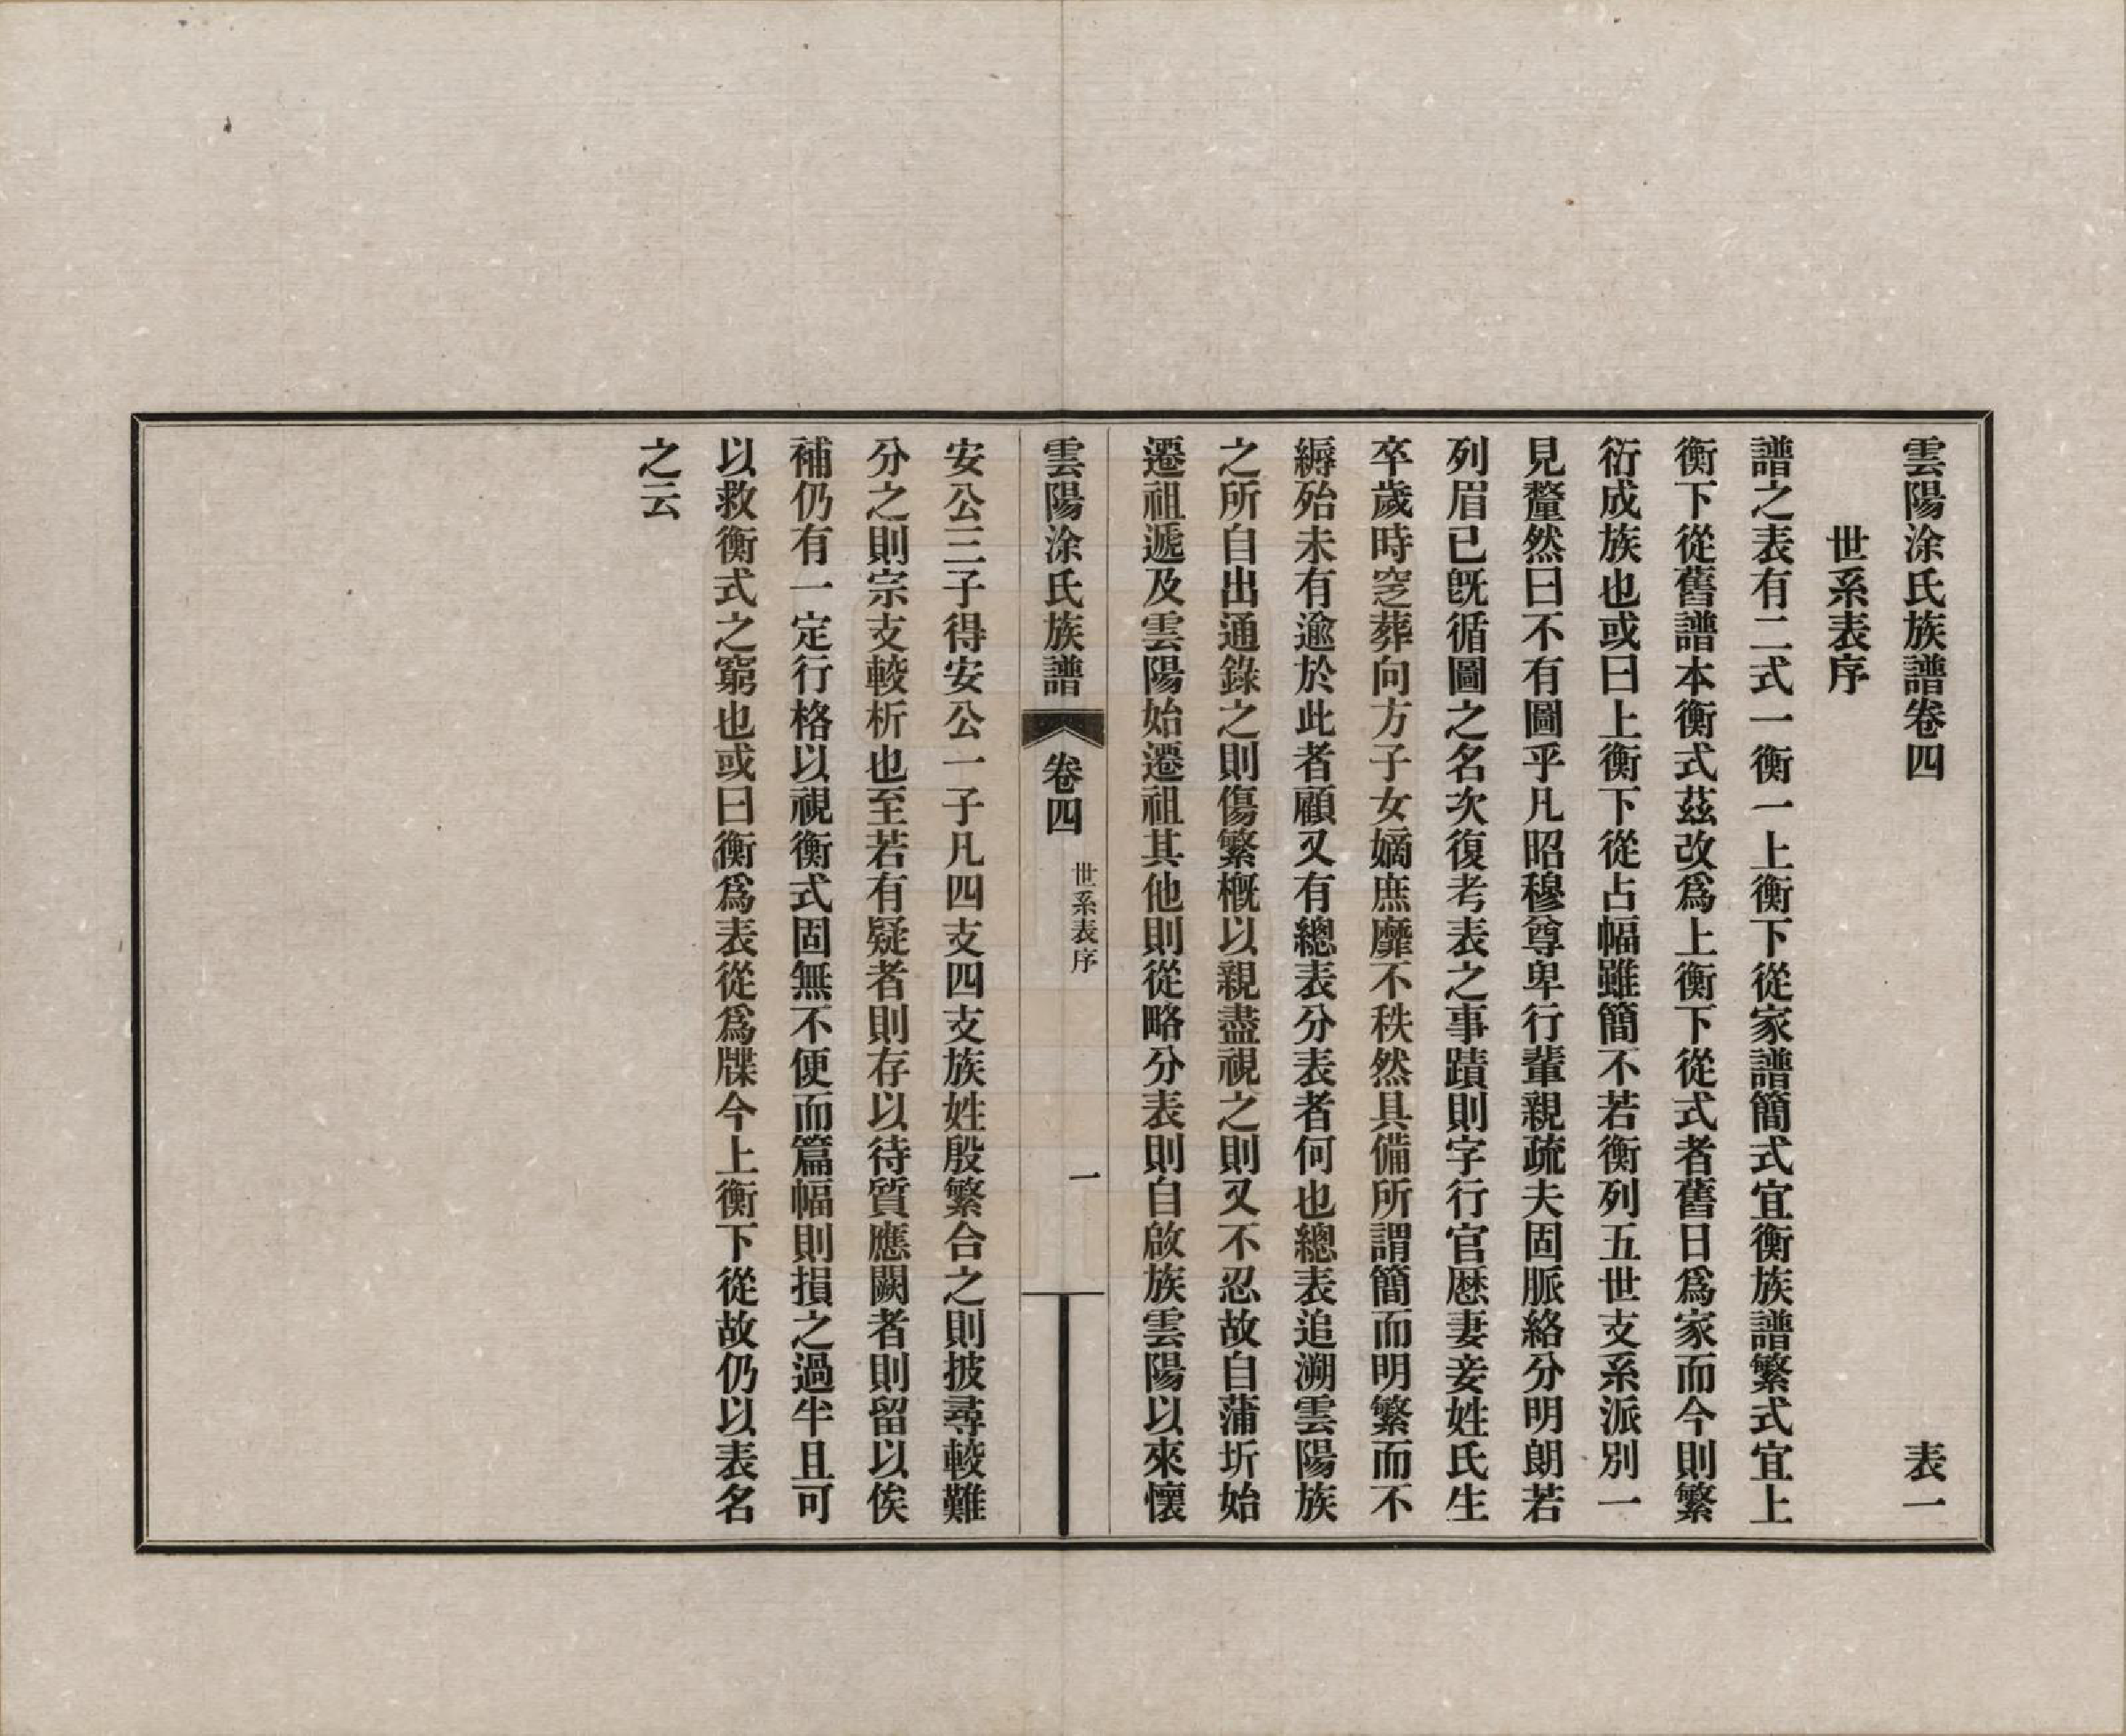 雲陽涂氏族譜卷四　表一
世系表序
譜之表有二式一衡一上衡下從家譜簡式宜衡族譜繁式宜上
衡下從舊譜本衡式茲改爲上衡下從式者舊日爲家而今則繁
衍成族也或曰上衡下從占幅雖簡不若衡列五世支系派別一
見釐然曰不有圖乎凡昭穆尊卑行輩親疏夫固脈絡分明朗若
列眉已既循圖之名次復考表之事蹟則字行官歷妻妾姓氏生
卒歲時窆葬向方子女嫡庶靡不秩然具備所謂簡而明繁而不
縟殆未有逾於此者顧又有總表分表者何也總表追溯雲陽族
之所自出通錄之則傷繁概以親盡視之則又不忍故自蒲圻始
遷祖遞及雲陽始遷祖其他則從略分表則自啟族雲陽以來懷
雲陽涂氏族譜　卷四　世系表序　一
安公三子得安公一子凡四支四支族姓殷繁合之則披尋較難
分之則宗支較析也至若有疑者則存以待質應闕者則留以俟
補仍有一定行格以視衡式固無不便而篇幅則損之過半且可
以救衡式之窮也或曰衡爲表從爲牒今上衡下從故仍以表名
之云